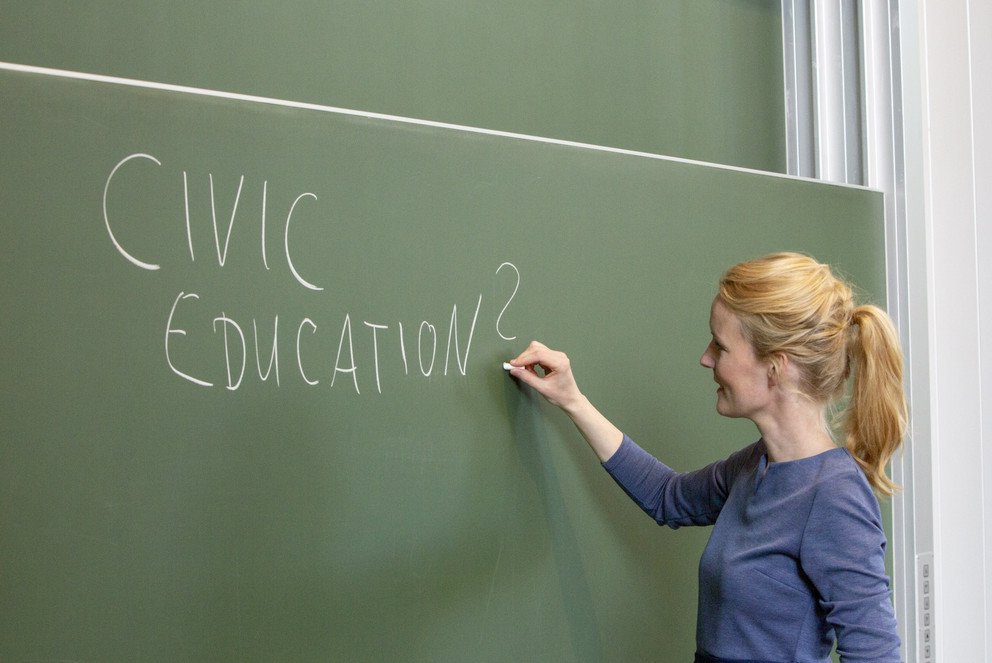 CIVIC
EDUCATION?